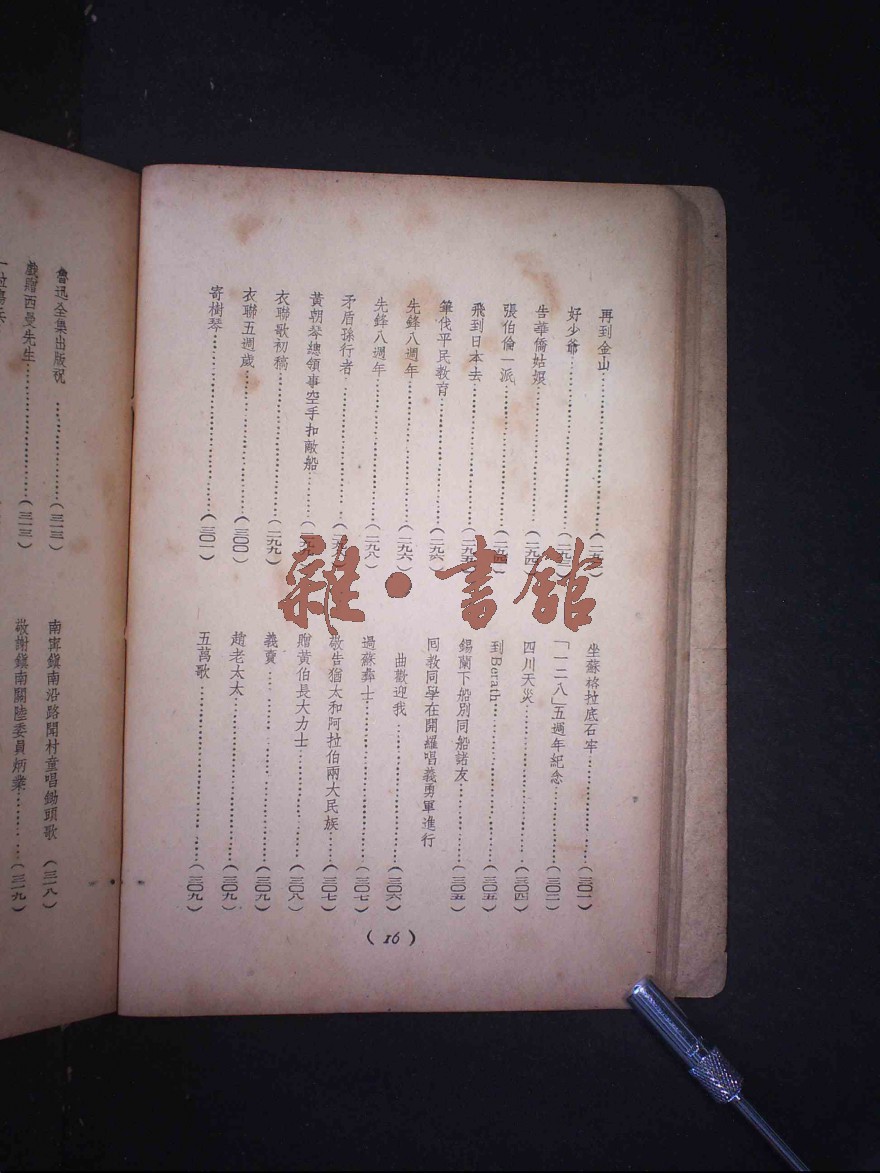 再到金山……(二九
好少爺……(二九三)
告華僑姑娘……(二九四)
張伯倫一派……(二九四)
飛到日本去……(二九五)
筆伐平民教育……(二九六)
先鋒八週年……(二九六)
先鋒八週年……(二九八)
矛盾孫行者……(二九八)
黃朝琴總領事空手扣敵船……(二九
衣聯歌初稿……(二九九)
衣聯五週歲……(三〇〇)
寄樹琴……(三〇一)
坐蘇格拉底石牢……(三〇一)
「一二八」五週年紀念……(三〇二)
四川天災……(三〇四)
到Berath……(三〇五)
錫蘭下船別同船諸友……(三〇五)
回教同學在開羅唱義勇軍進行
曲歡迎我……(三〇六)
過蘇彝士……(三〇七)
敬告猶太和阿拉伯兩大民族……(三〇七)
贈黃伯長大力士……(三〇八)
義賣……(三〇九)
趙老太太……(三〇九)
五萬歌……(三〇九)
(16)
魯迅全集出版祝……(三一三)
戲贈西曼先生……(三一三)
南寧鎮南沿路聞村童唱鋤頭歌 (三一八)
敬謝鎮南關陸委員炳業……(三一九)
雜·書館